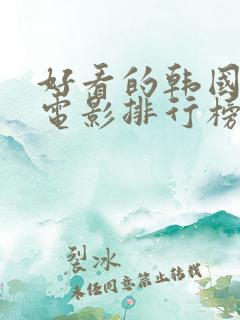 好看的韩国
电影排行榜
裂冰
未经同意禁止转载